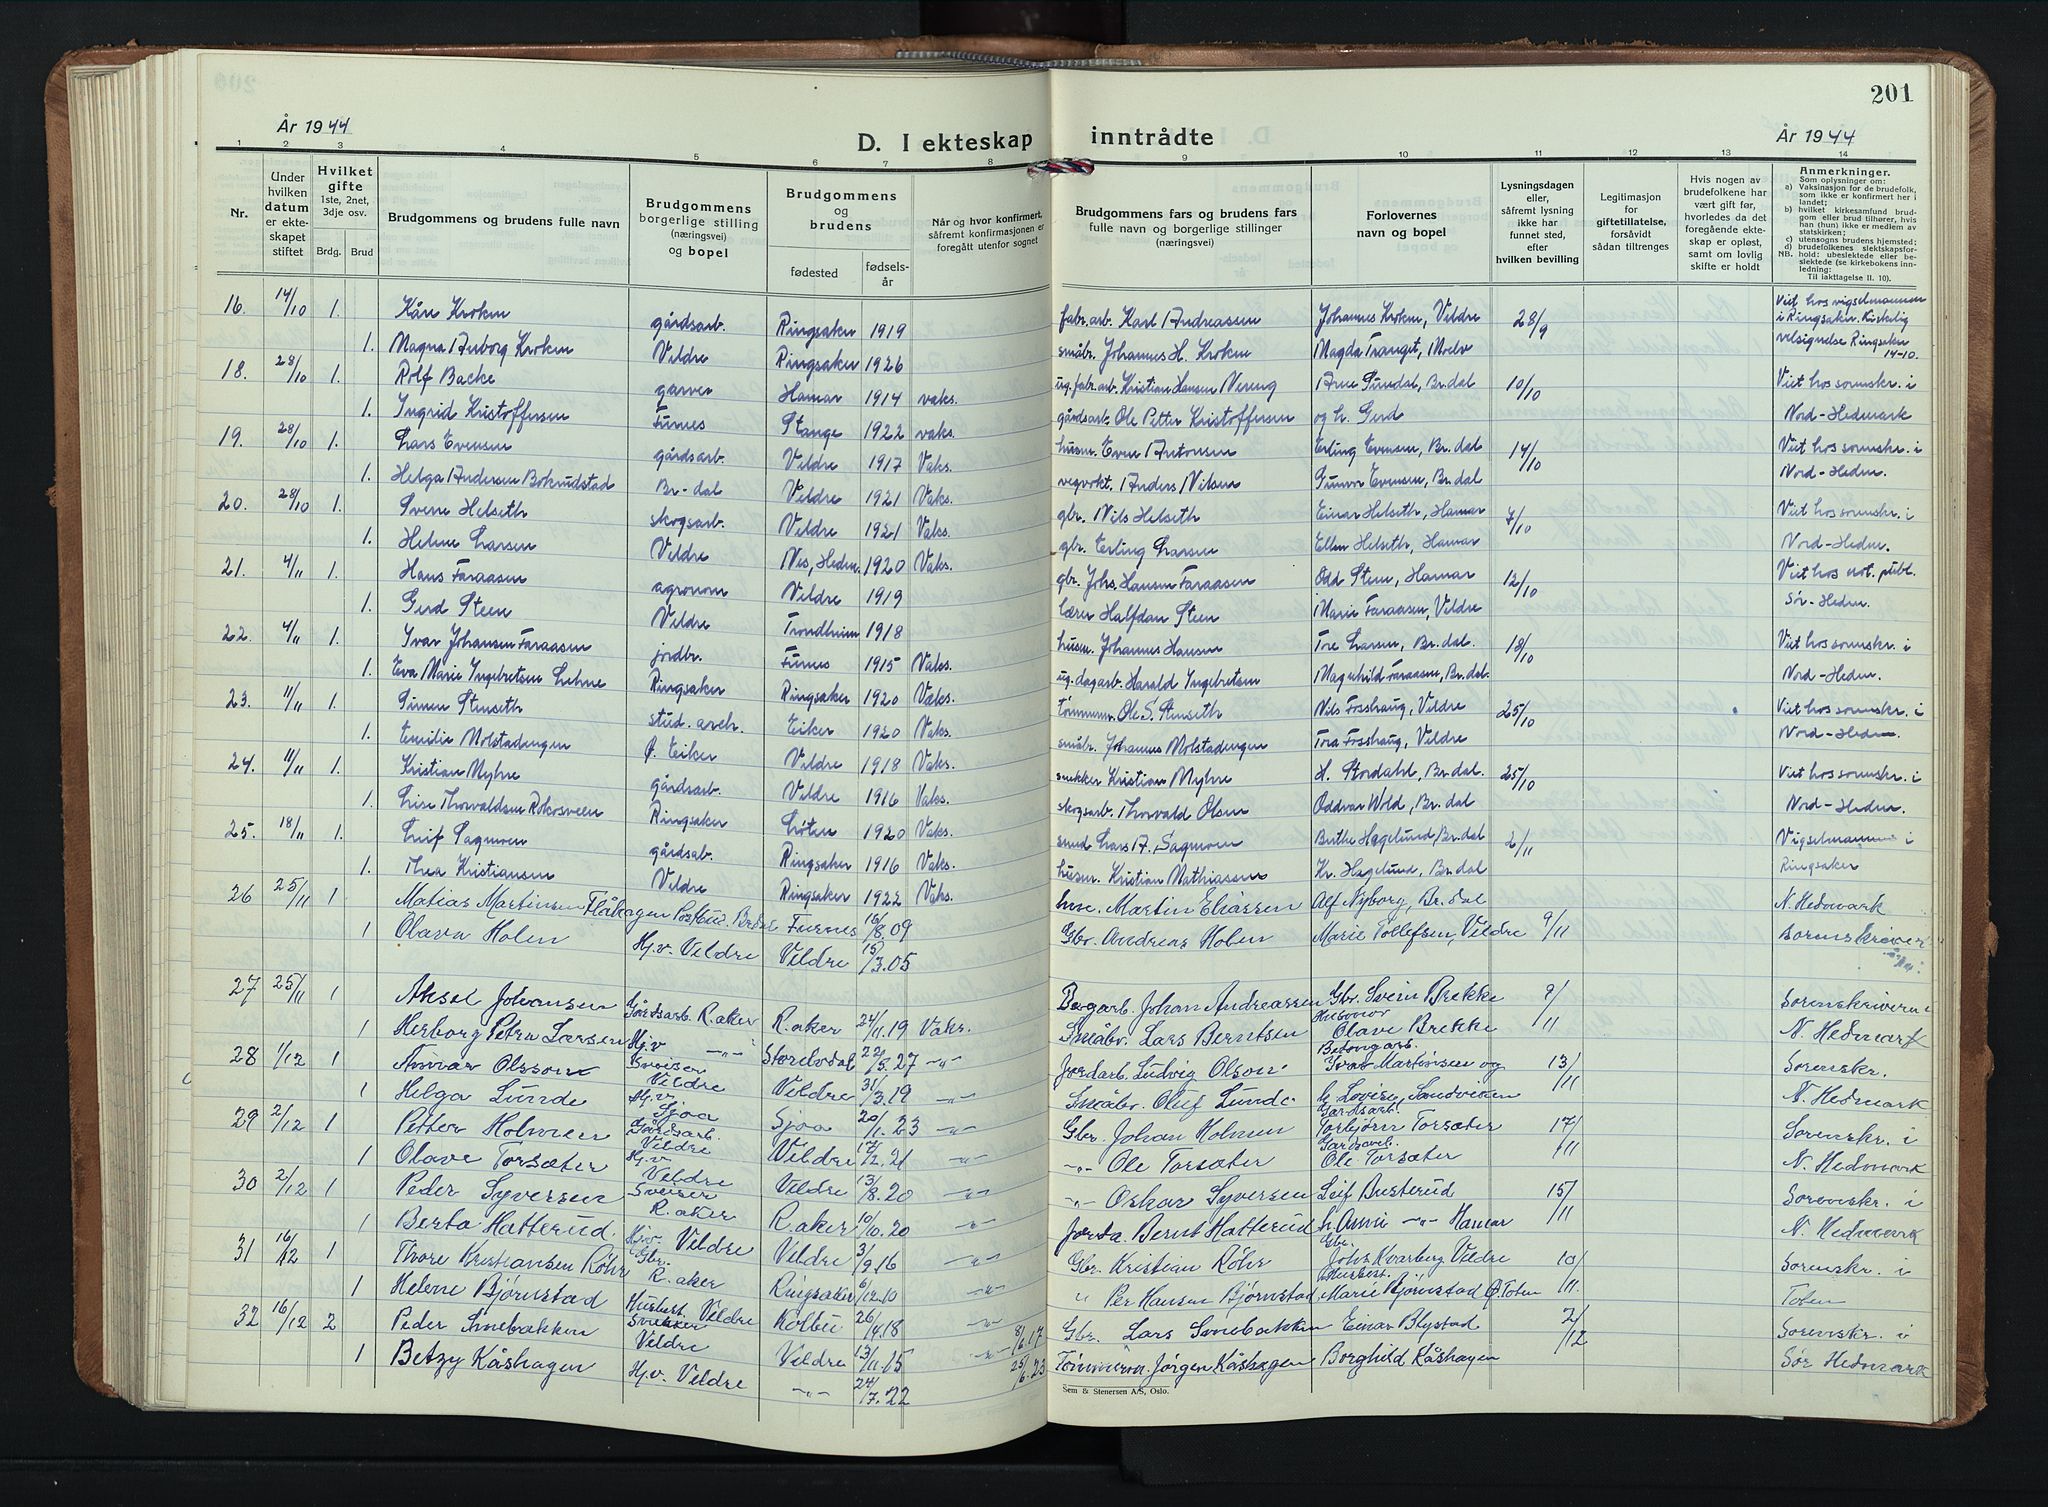 201
År 1944
D. I ekteskap inntrådte
År 1944
1 2 3 4 5 6 7 8 9 10 11 12 13 14
Nr.
Under hvilken datum er ekteskapet stiftet
Hvilket gifte 1ste, 2net, 3dje osv.
Brdg. Brud
Brudgommens og brudens fulle navn
Brudgommens borgerlige stilling (næringsvei) og bopel
Brudgommens og brudens
fødested
fødselsår
Når og hvor konfirmert, såfremt konfirmasjonen er foregått utenfor sognet
Brudgommens fars og brudens fars fulle navn og borgerlige stillinger (næringsvei)
Forlovernes navn og bopel
Lysningsdagen eller, såfremt lysning ikke har funnet sted, efter hvilken bevilling
Legitimasjon for giftetillatelse, forsåvidt sådan tiltrenges
Hvis nogen av brudefolkene har vært gift før, hvorledes da det foregående ekteskap er opløst, samt om lovlig skifte er holdt
Anmerkninger.
Som oplysninger om:
a) Vaksinasjon for de brudefolk, som ikke er konfirmert her i landet;
b) hvilket kirkesamfund brudgom eller brud tilhører, hvis han (hun) ikke er medlem av statskirken;
c) utensogns brudens hjemsted;
d) brudefolkenes slektskapsforhold: ubeslektede eller beslektede (se kirkebokens innledning:
NB. Til iakttagelse II. 10).
16. 14/10 1. Kåre Kroken gårdsarb. Ringsaker 1919 fabr.arb. Karl Andreassen Johannes Kroken, Veldre 28/9 Viet hos vigselmannen i Ringsaker. Kirkelig
1. Magna Anborg Kroken Veldre Ringsaker 1926 småbr. Johannes H. Kroken Magda Tranget, Moelv velsignelse Ringsaker 14-10.
18. 28/10 1. Rolf Backe garver Hamar 1914 vaks. ug. fabr.arb. Kristian Hansen Vereng Arne Sundal, Br.dal 10/10 Viet hos sorenskr. i
1. Ingrid Kristoffersen Furnes Stange 1922 vaks. gårdsarb. Ole Petter Kristoffersen og h. Gerd Nord-Hedmark
19. 28/10 1. Lars Evensen gårdsarb. Veldre 1917 Vaks. husm. Even Antonsen Erling Evensen, Br.dal 14/10 Viet hos sorenskr. i
1. Helga Andersen Bokrudstad Br-dal Veldre 1921 Vaks. vegvokt. Anders Nilsen Gunvor Evensen, Br.dal Nord-Hedm.
20. 28/10 1. Sverre Helseth skogsarb. Veldre 1921 Vaks. gbr. Nils Helseth Einar Helseth, Hamar 7/10 Viet hos sorenskr. i
1. Helene Larsen Veldre Nes, Hedm. 1920 Vaks. gbr. Erling Larsen Ellen Helseth, Hamar Nord-Hedm.
21. 4/11 1. Hans Faraasen agronom Veldre 1919 gbr. Johs. Hansen Faraasen Odd Steen, Hamar 12/10 Viet hos not. publ.
1. Gerd Steen Veldre Trondheim 1918 lærer Halfdan Steen Marie Faraasen, Veldre Sør-Hedm.
22. 4/11 1. Ivar Johansen Faraasen jordbr. Furnes 1915 Vaks. husm. Johannes Hansen Tore Larsen, Br.dal. 18/10 Viet hos sorenskr. i
1. Eva Marie Ingebretsen Lehne Ringsaker Ringsaker 1920 Vaks. ug. dagarb. Harald Ingebretsen Magnhild Faraasen, Br.dal Nord-Hedm.
23. 11/11 1. Simen Stenseth stud. arch. Eiker 1920 Vaks. tømmerm. Ole S. Stenseth Nils Fosshaug, Veldre 25/10 Viet hos sorenskr. i
1. Emilie Molstadengen Ø. Eiker Veldre 1918 Vaks. småbr. Johannes Molstadengen Tora Fosshaug, Veldre Nord-Hedm
24. 11/11 1. Kristian Myhre gårdsarb. Veldre 1916 Vaks. snekker Kristian Myhre H. Stordahl, Br.dal. 25/10 Viet hos sorenskr. i
1. Lise Thorvaldsen Rokosveen Ringsaker Løten 1920 Vaks. skogsarb. Thorvald Olsen Oddvar Wold, Br.dal Nord-Hedm.
25. 18/11 1. Leif Sagmoen gårdsab. Ringsaker 1916 Vaks. smed Lars A. Sagmoen Birthe Hagelund, Br.dal 2/11 Vigselmannen i
1. Thea Kristiansen Veldre Ringsaker 1922 Vaks. husm. Kristian Mathiassen Kr. Hagelund, Br.dal Ringsaker
26 25/11 1 Matias Martinsen Flåhagen Postbud Br.dal Furnes 16/8 09 Martin Eliassen Alf Nyborg, Br.dal N. Hedmark
1 Olava Holen Hj.v. Veldre Veldre 15/3.05 Gbr. Andreas Holen Marie Tollefsen, Veldre 9/11 sorenskriver
27 25/11 1 Aksel Johansen Gårdsarb. R.aker R.aker 24/11.19 Vakr. Dagarb. Johan Andreassen Gbr. Svein Brekke 9/11 Sorenskriveren i
1 Herborg Petra Larsen Hj.v -"- Storelvdal 22/5.27 -"- Småbr. Lars Berntsen Husmor Olave Brekke N. Hedmark
28 1/12 1 Annar Olsson Sveiser Veldre Veldre 31/3.19 Jordarb. Ludvig Olson Betongarb. Ivar Martinsen og 13/11 Sorenskr.
1 Helga Lunde Hj.v. Sjoa Sjoa 20/1.23 -"- Småbr. Oluf Lunde h. Lovise, Sandviken N. Hedmark
29 2/12 1 Petter Holmen Gårdsarb. Veldre Veldre 17/12.21 -"- Gbr. Johan Holmen Gårdsarb. Torbjørn Torsæter 17/11 Sorenskr. i
1 Olave Torsæter Hj.v. Veldre Veldre 13/8.20 -"- -"- Ole Torsæter Gårdsarb. Ole Torsæter N. Hedmark
30 2/12 1 Peder Syversen Sveiser R.aker R.aker 10/10.20 -"- -"- Oskar Syversen Leif Busterud 15/11 Sorenskr. i
1 Berta Hatterud. Hj.v. Veldre Veldre 3/9.16 -"- Jorda. Bernt Hatterud h. Anni -"- Hamar N. Hedmark
31 16/12 1 Thore Kristiansen Röhr Gbr. R.aker Ringsaker 6/12.10 -"- Gbr. Kristian Röhr Gbr. Johs. Kvarberg Veldre 10/11. Sorenskr. i
1 Helene Bjørnstad Husbest. Veldre Kolbu 26/4.18 -"- " Per Hansen Bjørnstad Husbest. Marie Bjørnstad Ø. Toten Toten
32 16/12 2 Peder Smebakken Snekker Veldre Veldre 13/11.05 -"- 8/6.17 Gbr. Lars Smebakken Einar Blystad 2/12 Sorenskr. i
1 Betzy Kåshagen Hj.v. Veldre -"- 24/7.22 25/6.23 Tømmerm. Jørgen Kåshagen Borghild Kåshagen Sør Hedmark
Sem & Stenersen A/S, Oslo.